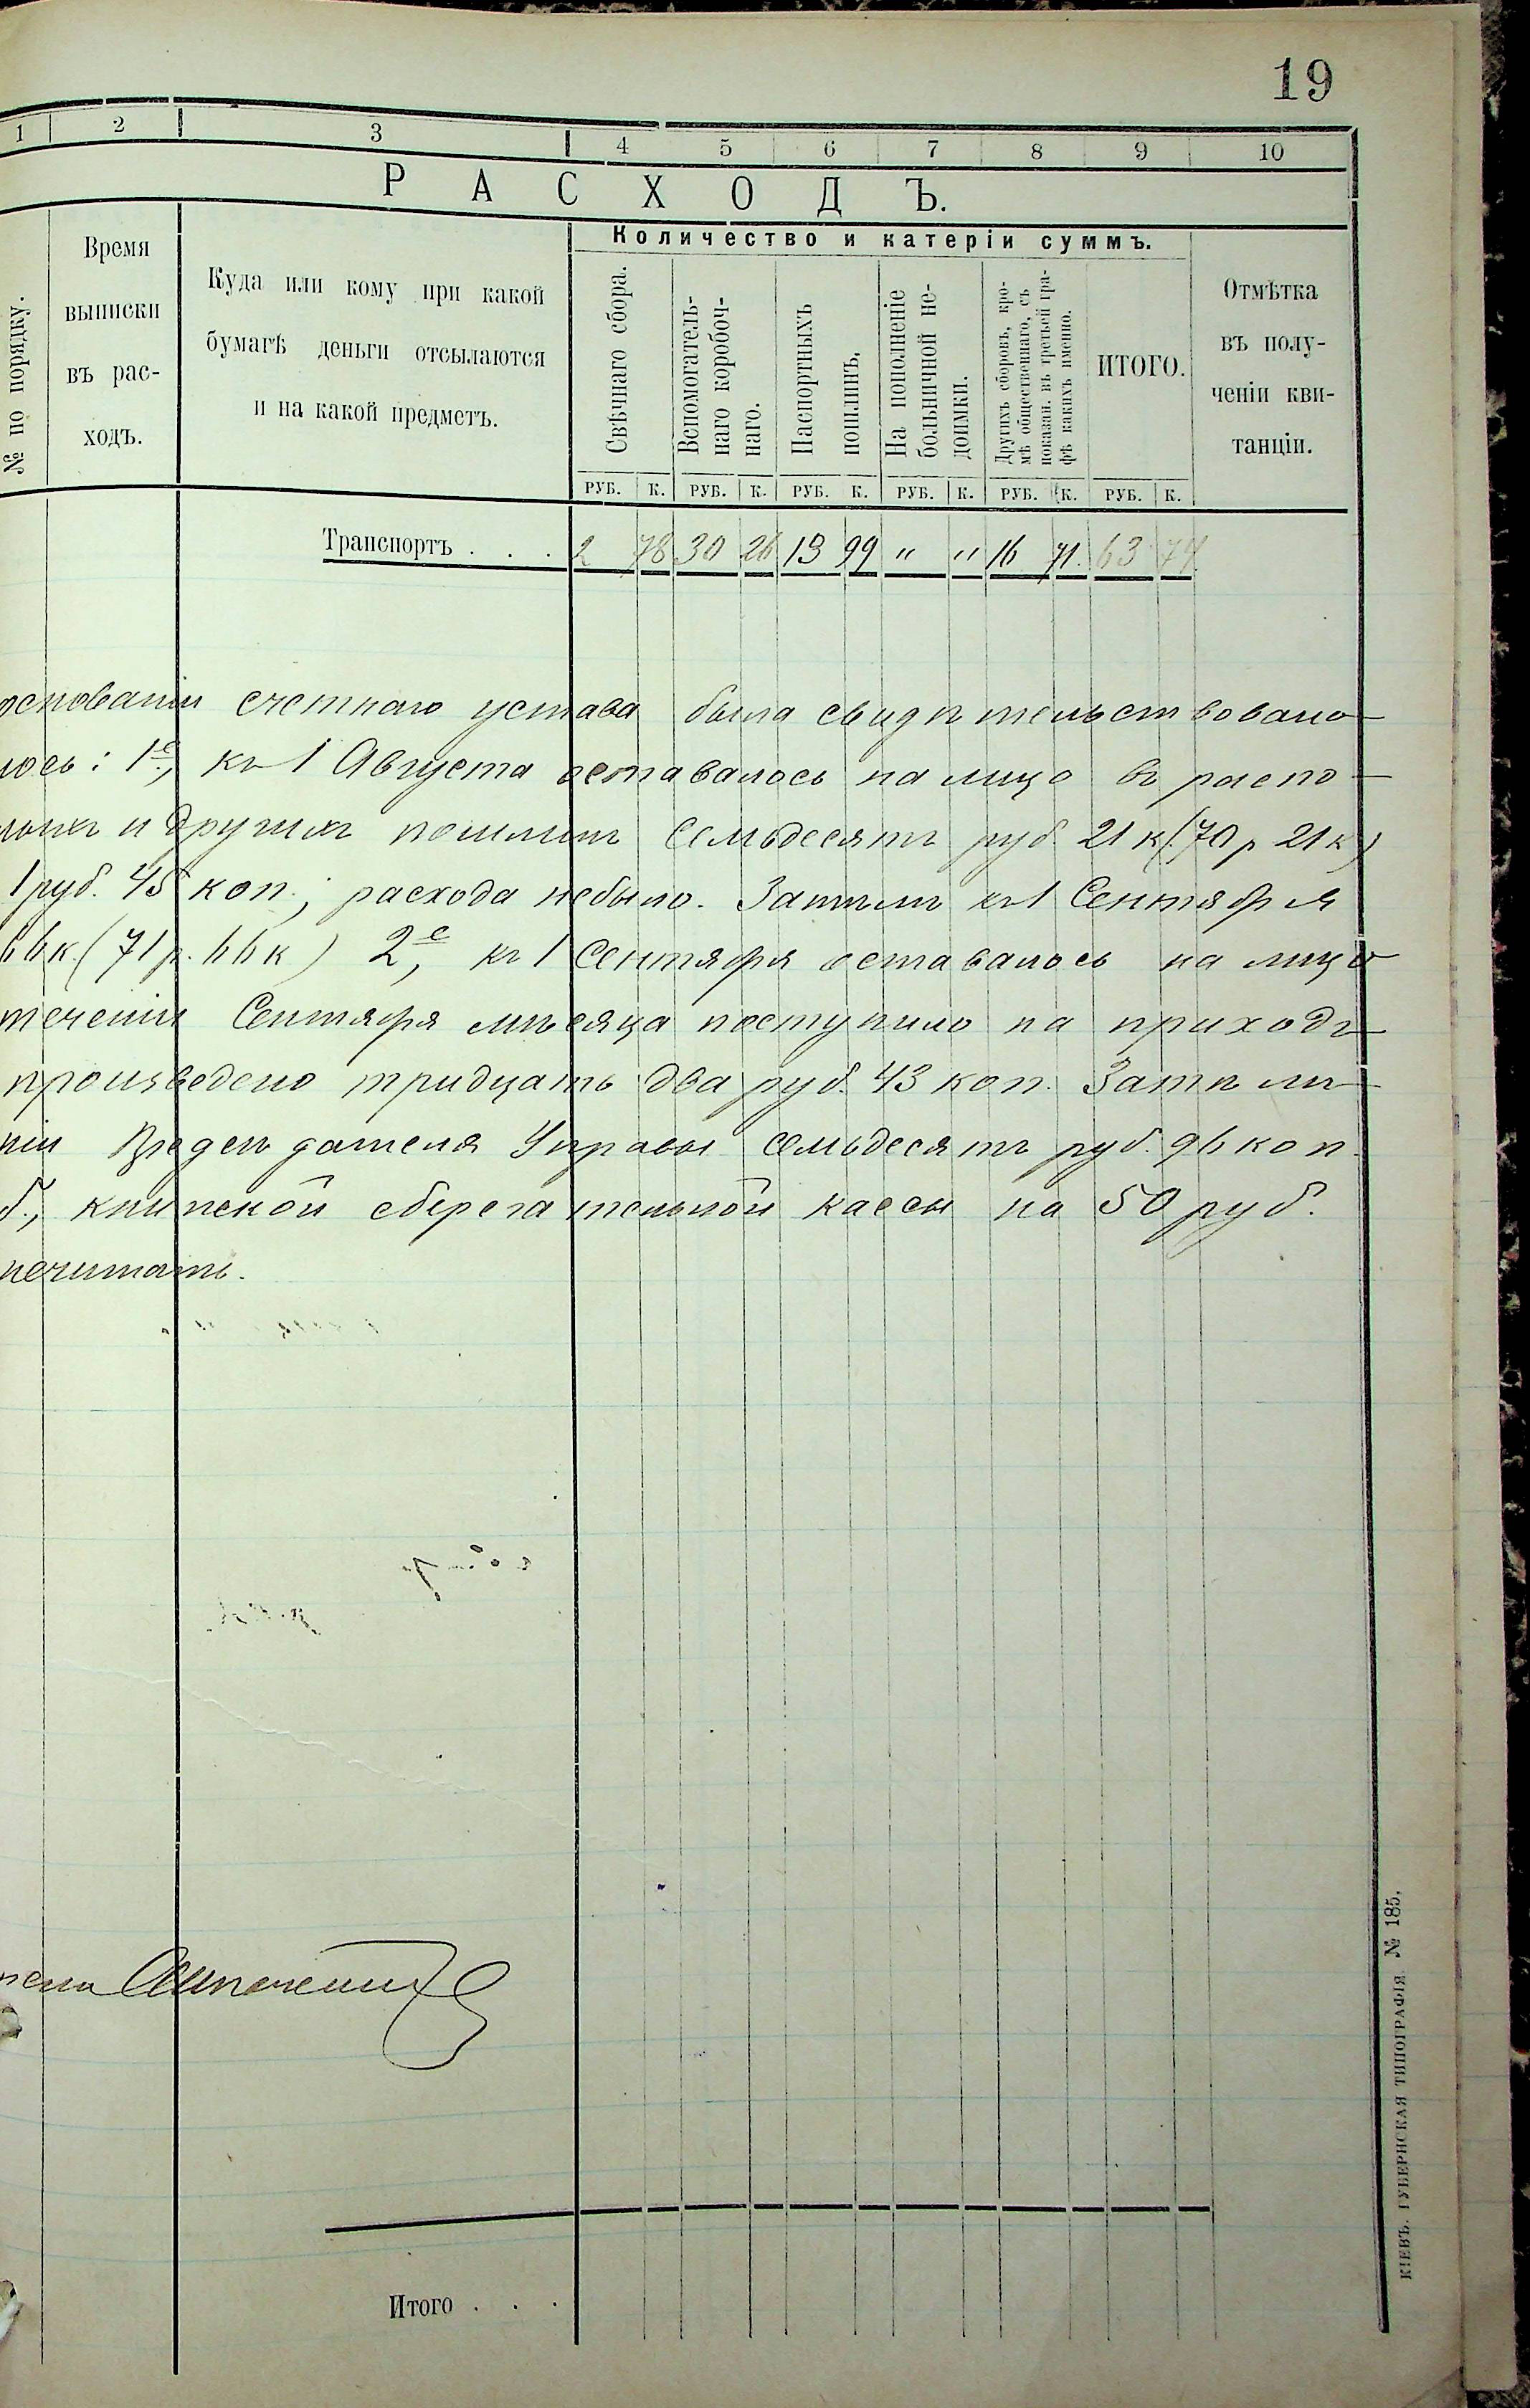 19
1 2 3 4 5 6 7 8 9 10
РАСХОДЪ.
№ по порядку.
Время
выписки
въ рас-
ходъ.
Куда или кому при какой
бумагѣ деньги отсылаются
и на какой предметъ.
Количество и катеріи суммъ.
Свѣчнаго сбора.
Вспомогатель-
наго коробоч-
наго.
Паспортныхъ
пошлинъ.
На пополненіе
больничной не-
доимки.
Другихъ сборовъ, кро-
мѣ общественнаго, съ
показан. въ третьей гра-
фѣ какихъ именно.
ИТОГО.
Отмѣтка
въ полу-
ченіи кви-
танціи.
РУБ. К. РУБ. К. РУБ. К. РУБ. К. РУБ. К. РУБ. К.
Транспортъ . . . 2 78 30 26 13 99 " " 16 71. 63 74
основаніи счетнаго устава была свидѣтельствовано
лось: 1е, къ 1 Августа оставалось на лицо въ распо-
и другихъ пошлинъ Семьдесятъ руб. 21 к. (70 р 21 к)
1 руб. 45 коп.; расхода небыло. Затѣмъ къ 1 Сентября
66 к. (71 р. 66 к) 2е, къ 1 Сентября оставалось на лицо
теченіи Сентября мѣсяца поступило на приходъ
произведено тридцать два руб. 43 коп. Затѣмъ
ніи Предсѣдателя Управы Семьдесятъ руб. 96 коп.
б., книжкой сберегательной кассы на 50 руб.
печатать.
Итого . . .
КІЕВЪ. ГУБЕРНСКАЯ ТИПОГРАФІЯ. № 185.